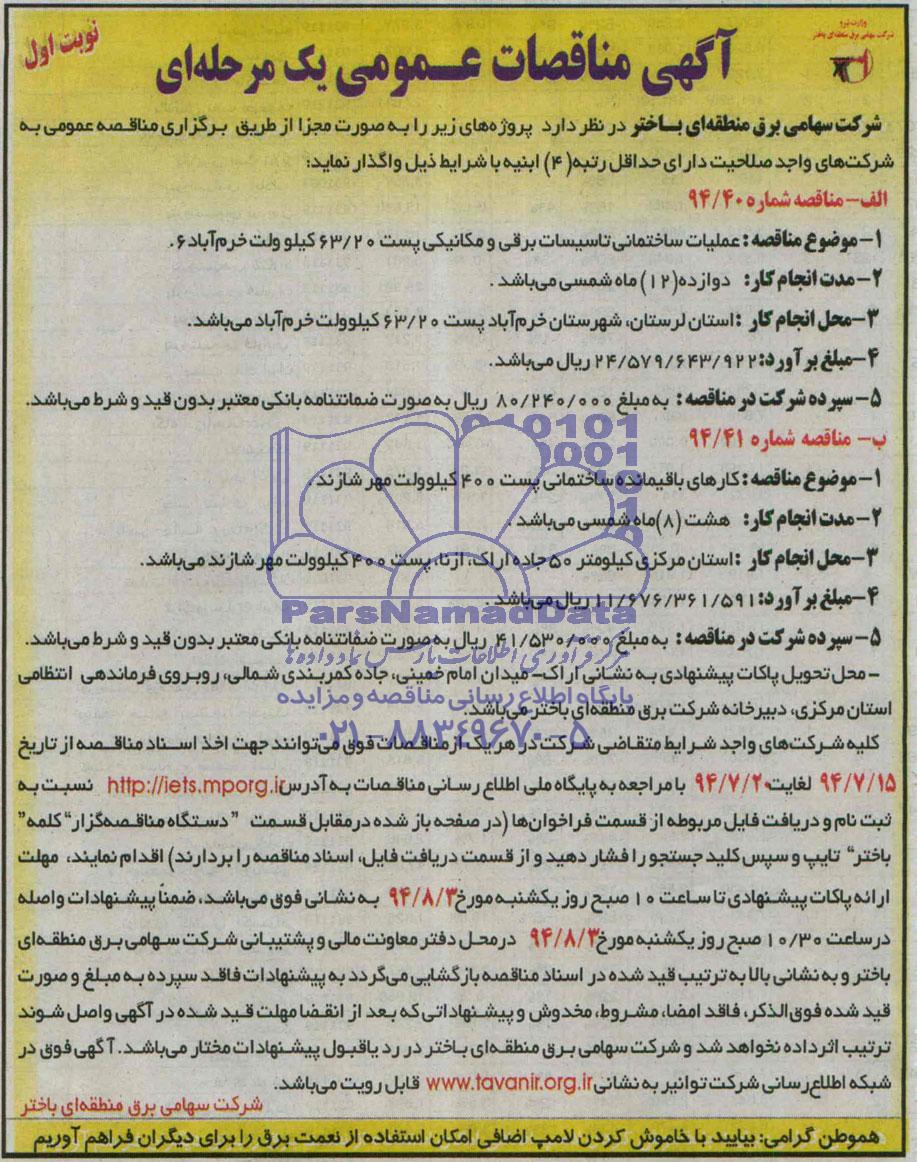 وزارت نیرو
شرکت سهامی برق منطقه‌ای باختر
نوبت اول
آگهی مناقصات عـمومی یک مرحله‌ای
شرکت سهامی برق منطقه‌ای بـاختر در نظر دارد پروژه‌های زیر را به صورت مجزا از طریق برگزاری مناقصه عمومی به
شرکت‌های واجد صلاحیت دارای حداقل رتبه(۴) ابنیه با شرایط ذیل واگذار نماید:
الف- مناقصه شماره ۹۴/۴۰
۱- موضوع مناقصه: عملیات ساختمانی تاسیسات برقی و مکانیکی پست ۶۳/۲۰ کیلو ولت خرم‌آباد۶.
۲- مدت انجام کار: دوازده(۱۲) ماه شمسی می‌باشد.
۳- محل انجام کار : استان لرستان، شهرستان خرم‌آباد پست ۶۳/۲۰ کیلوولت خرم‌آباد می‌باشد.
۴- مبلغ برآورد: ۲۴/۵۷۹/۶۴۳/۹۲۲ ریال می‌باشد.
۵- سپرده شرکت در مناقصه: به مبلغ ۸۰/۲۴۰/۰۰۰ ریال به صورت ضمانتنامه بانکی معتبر بدون قید و شرط می‌باشد.
ب- مناقصه شماره ۹۴/۴۱
۱- موضوع مناقصه: کارهای باقیمانده ساختمانی پست ۴۰۰ کیلوولت مهر شازند.
۲- مدت انجام کار: هشت (۸)ماه شمسی می‌باشد.
۳- محل انجام کار : استان مرکزی کیلومتر ۵۰ جاده اراک، ازنا، پست ۴۰۰ کیلوولت مهر شازند می‌باشد.
۴- مبلغ برآورد: ۱۱/۶۷۶/۳۶۱/۵۹۱ ریال می‌باشد.
۵- سپرده شرکت در مناقصه: به مبلغ ۴۱/۵۳۰/۰۰۰ ریال به صورت ضمانتنامه بانکی معتبر بدون قید و شرط می‌باشد.
- محل تحویل پاکات پیشنهادی به نشانی اراک- میدان امام خمینی، جاده کمربندی شمالی، روبروی فرماندهی انتظامی
استان مرکزی، دبیرخانه شرکت برق منطقه‌ای باختر می‌باشد.
کلیه شرکت‌های واجد شرایط متقاضی شرکت در هر یک از مناقصات فوق می‌توانند جهت اخذ اسناد مناقصه از تاریخ
۹۴/۷/۱۵ لغایت ۹۴/۷/۲۰ با مراجعه به پایگاه ملی اطلاع رسانی مناقصات به آدرس http://iets.mporg.ir نسبت به
ثبت نام و دریافت فایل مربوطه از قسمت فراخوان‌ها (در صفحه باز شده درمقابل قسمت "دستگاه مناقصه‌گزار" کلمه"
باختر" تایپ و سپس کلید جستجو را فشار دهید و از قسمت دریافت فایل، اسناد مناقصه را بردارند) اقدام نمایند، مهلت
ارائه پاکات پیشنهادی تا ساعت ۱۰ صبح روز یکشنبه مورخ ۹۴/۸/۳ به نشانی فوق می‌باشد، ضمناً پیشنهادات واصله
در ساعت ۱۰/۳۰ صبح روز یکشنبه مورخ ۹۴/۸/۳ در محل دفتر معاونت مالی و پشتیبانی شرکت سهامی برق منطقه‌ای
باختر و به نشانی بالا به ترتیب قید شده در اسناد مناقصه بازگشایی می‌گردد به پیشنهادات فاقد سپرده به مبلغ و صورت
قید شده فوق‌الذکر، فاقد امضا، مشروط، مخدوش و پیشنهاداتی که بعد از انقضا مهلت قید شده در آگهی واصل شوند
ترتیب اثر داده نخواهد شد و شرکت سهامی برق منطقه‌ای باختر در رد یاقبول پیشنهادات مختار می‌باشد. آگهی فوق در
شبکه اطلاع‌رسانی شرکت توانیر به نشانی www.tavanir.org.ir قابل رویت می‌باشد.
شرکت سهامی برق منطقه‌ای باختر
هموطن گرامی: بیایید با خاموش کردن لامپ اضافی امکان استفاده از نعمت برق را برای دیگران فراهم آوریم
ParsNamadData
مرکز فرآوری اطلاعات پارس نماد داده‌ها
پایگاه اطلاع رسانی مناقصه و مزایده
۰۲۱-۸۸۳۴۹۶۷۰-۵